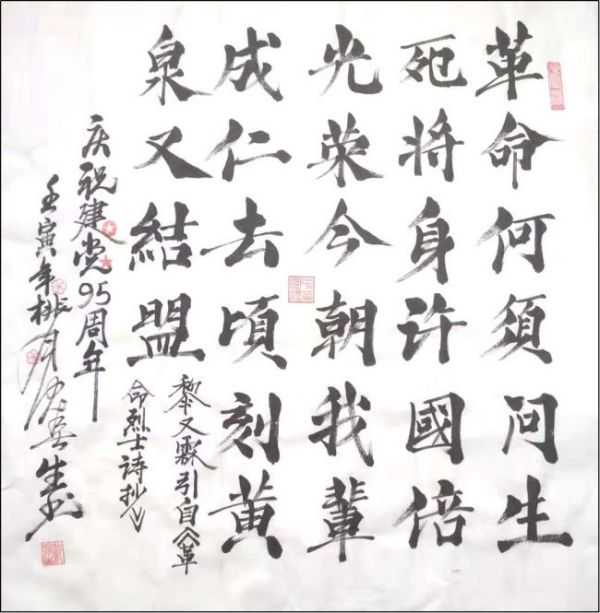 革命何須问生
死将身许國倍
光荣今朝我輩
成仁去頃刻黄
泉又結盟
黎又霖引自《革
命烈士詩抄》
庆祝建党95周年
壬寅年桃月生书